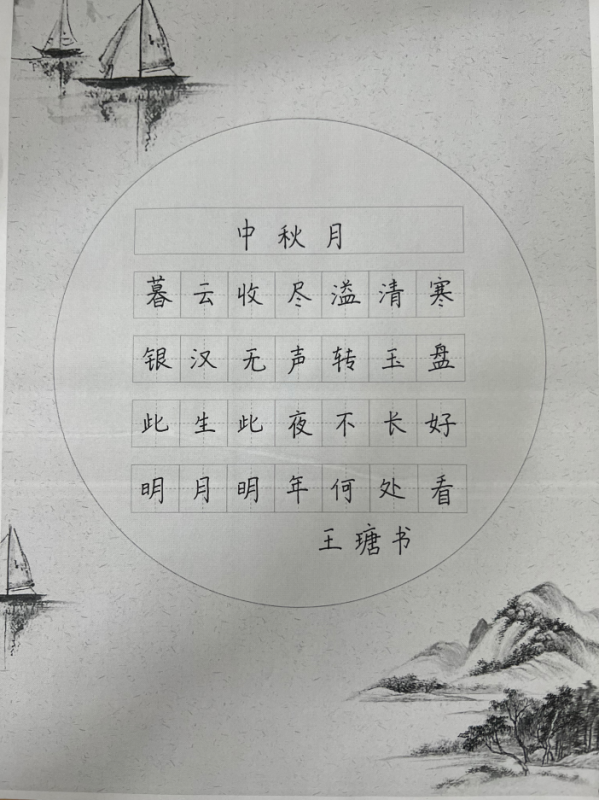 中秋月
暮云收尽溢清寒
银汉无声转玉盘
此生此夜不长好
明月明年何处看
王瑭书